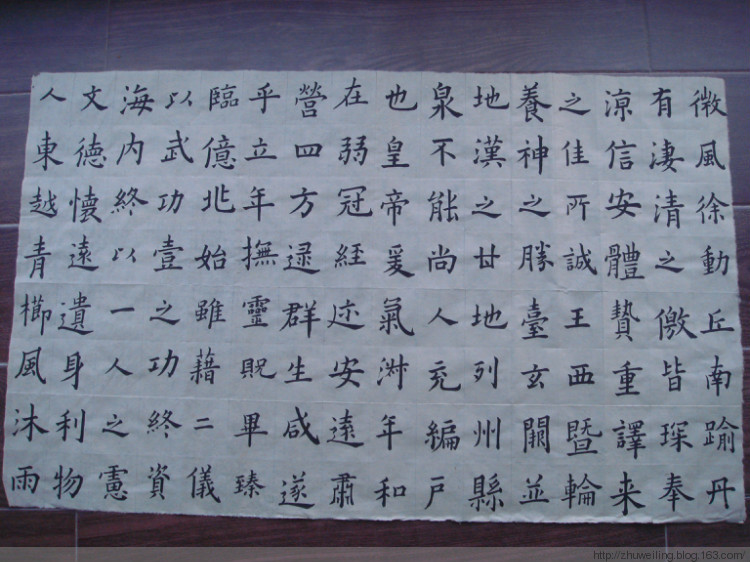 微風徐動丘南踰丹
有淒清之儌皆琛奉
涼信安體贄重譯来
之佳所誠王西暨輪
養神之勝臺玄闕並
地漢之甘地列州縣
泉不能尚人充編戶
也皇帝爰氣淑年和
在弱冠經迩安遠肅
營四方逮群生咸遂
乎立年撫靈貺畢臻
臨億兆始雖藉二儀
以武功壹之功終資
海内終以一人之慮
文德懷遠遺身利物
人東越青櫛風沐雨
http://zhuweiling.blog.163.com/